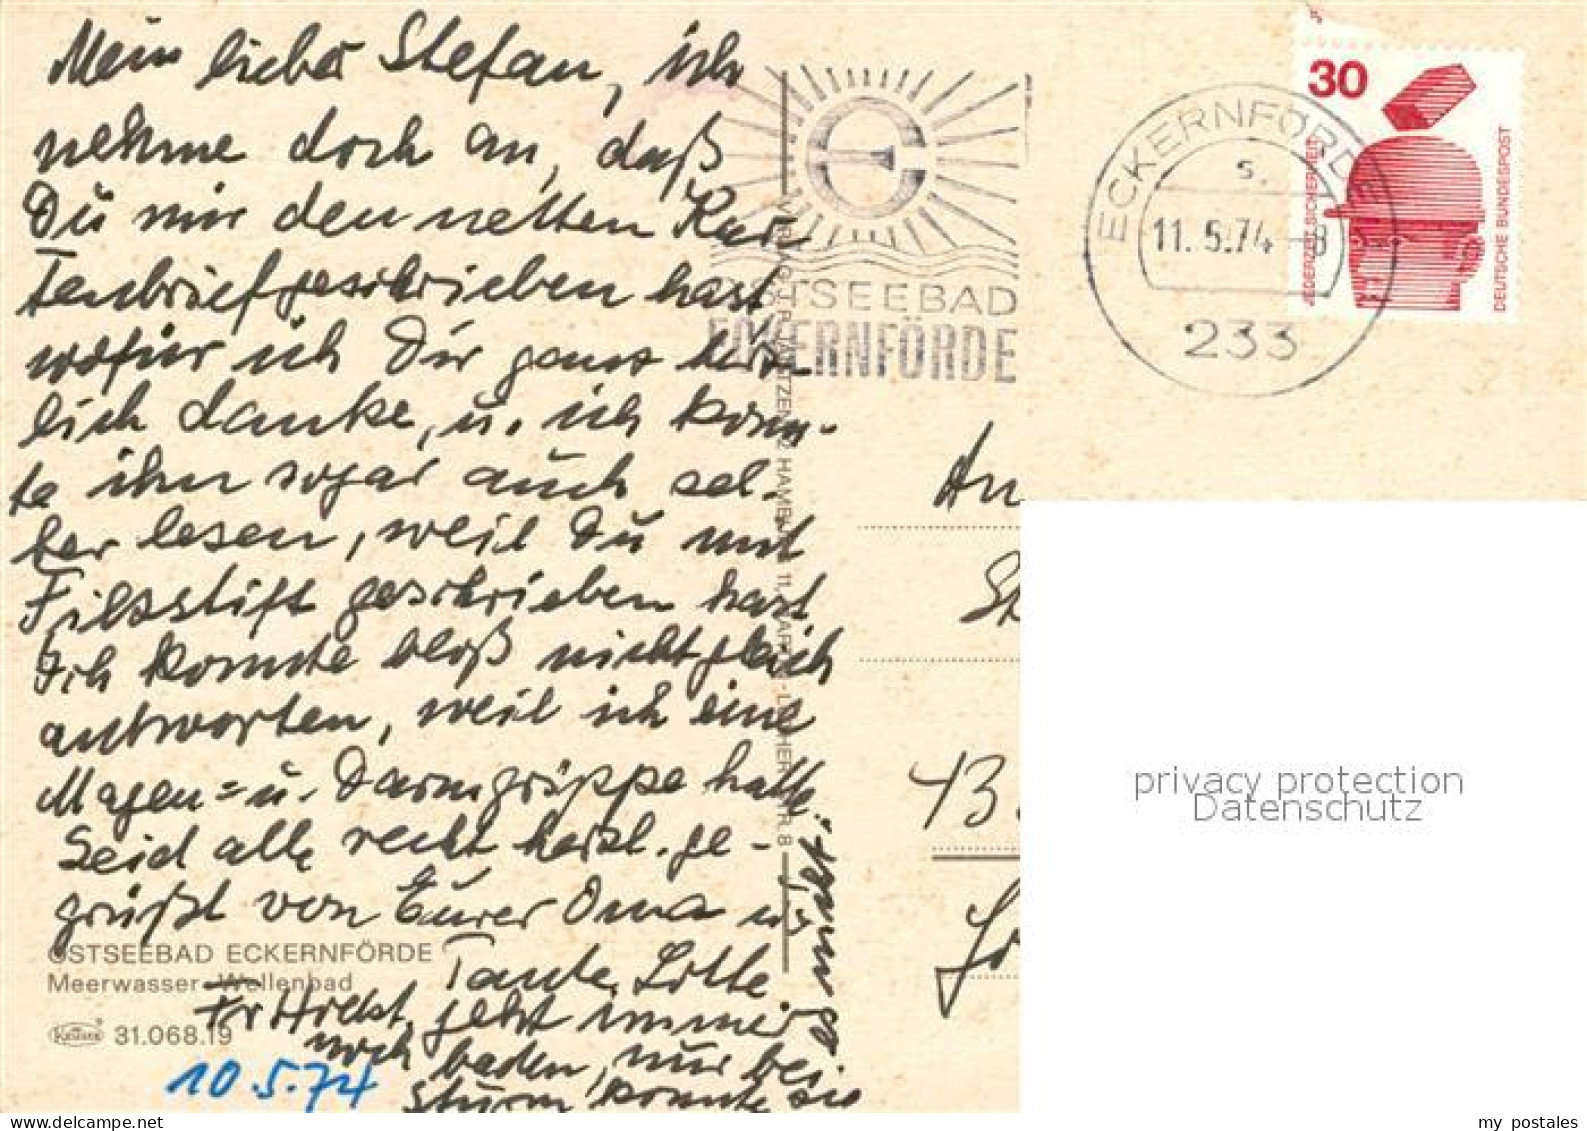 Mein lieber Stefan, ich
nehme doch an, daß
Du mir den netten Kar-
tenbrief geschrieben hast
wofür ich Dir ganz herz-
lich danke, u. ich konn-
te ihn sogar auch sel-
ber lesen, weil Du mit
Filzstift geschrieben hast
Ich konnte bloß nicht gleich
antworten, weil ich eine
Magen= u. Darmgrippe hatte.
Seid alle recht herzl. ge-
grüßt von Eurer Oma u.
Tante Lotte
geht immer
noch baden, nur bei
Sturm konnte sie
es nicht.
10.5.74
OSTSEEBAD ECKERNFÖRDE
Meerwasser-Wellenbad
Krüger 31.068.19
OSTSEEBAD
ECKERNFÖRDE
ECKERNFÖRDE
S.
11.5.74-8
233
30
JEDERZEIT SICHERHEIT
DEUTSCHE BUNDESPOST
An
St
43
privacy protection
Datenschutz
my postales